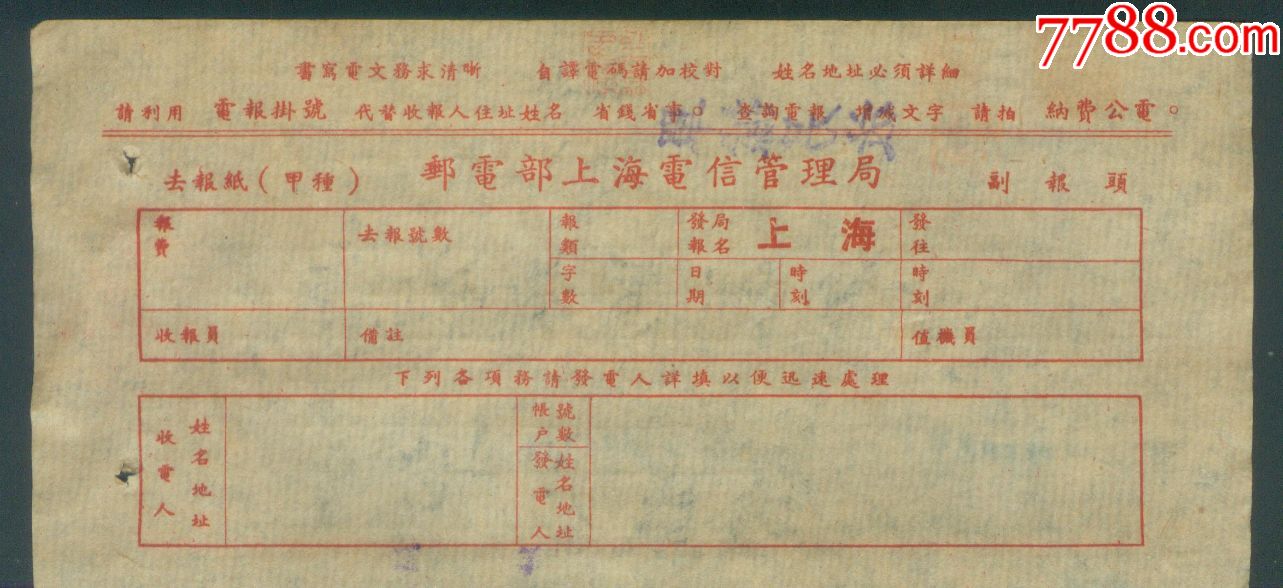 7788.com
書寫電文務求清晰 自譯電碼請加校對 姓名地址必須詳細
請利用 電報掛號 代替收報人住址姓名 省錢省事。 查詢電報 增減文字 請拍 納費公電。
去報紙(甲種) 郵電部上海電信管理局 副報頭
報費 去報號數 報類 發報局名 上海 發往
字數 日期 時刻 時刻
收報員 備註 值機員
下列各項務請發電人詳填以便迅速處理
收電人 姓名地址 帳戶號數
發電人 姓名地址